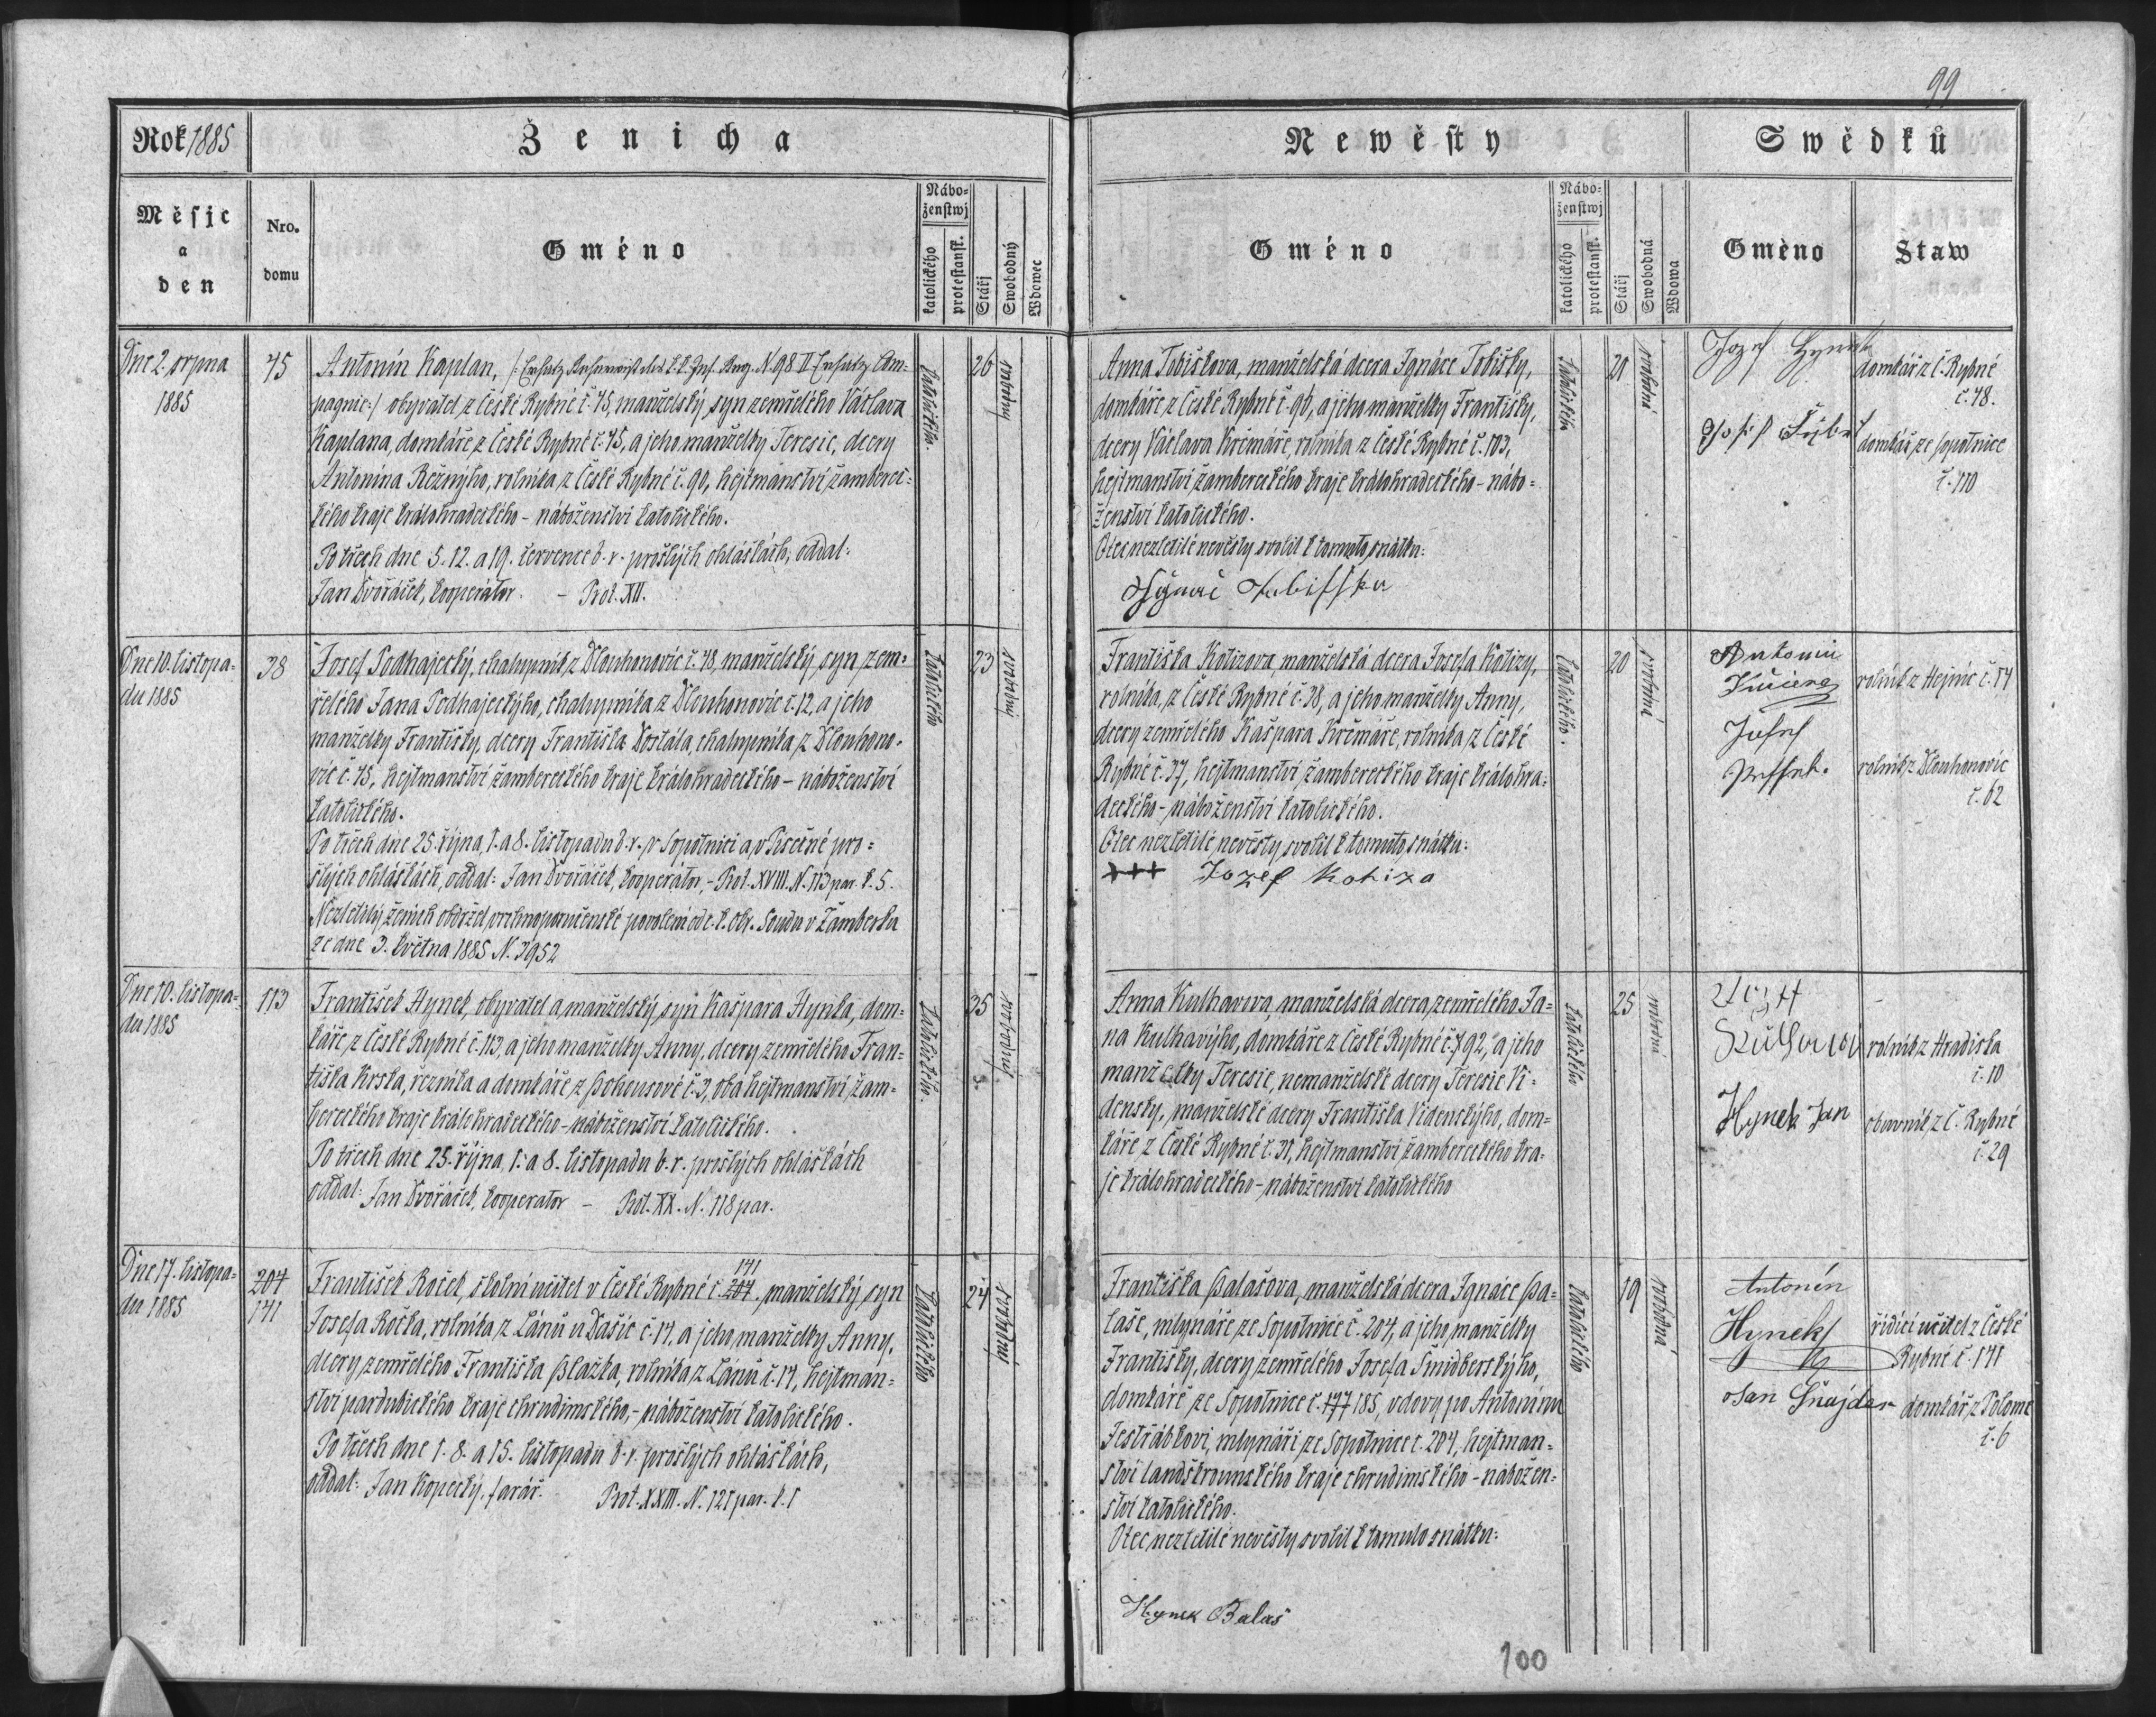 99
Rok 1885
Ženicha
Newěsty
Swědků
Měsjc
a
den
Nro.
domu
Gméno
Nábo-
ženstwj
katolického
protestansk.
Stářj
Swobodný
Wdowec
Gméno
Nábo-
ženstwj
katolického
protestansk.
Stářj
Swobodná
Wdowa
Gméno
Staw
Dne 2. srpna
1885
45
Antonín Kaplan, /: Ersatz Reservist des k.k. Inf. Reg. N. 98 II Ersatz Com-
pagnie :/ obyvatel z České Rybné č. 45, manželský syn zemřelého Václava
Kaplana, domkáře z České Rybné č. 45, a jeho manželky Teresie, dcery
Antonína Režnýho, rolníka z České Rybné č. 90, hejtmanství žamberec-
kého kraje králohradeckého - náboženství katolického.
Po třech dne 5. 12. a 19. července b. r. prošlých ohláškách, oddal:
Jan Dvořáček, kooperátor. - Prot. XII.
katolického.
26
svobodný
Anna Tobiškova, manželská dcera Ignáce Tobišky,
domkáře z České Rybné č. 96, a jeho manželky Františky,
dcery Václava Krčmáře, rolníka z České Rybné č. 103,
hejtmanství žambereckého kraje králohradeckého - nábo-
ženství katolického.
Otec nezletilé nevěsty svolil k tomuto snátku:
katolického
21
svobodná
Jozef Hynek
domkář z Č. Rybné
č. 48.
Josef
domkář ze Sopotnice
č. 110
Dne 10. listopa-
du 1885
38
Josef Podhajecký, chalupník z Dlouhonovic č. 48, manželský syn zem-
řelého Jana Podhajeckýho, chalupníka z Dlouhonovic č. 12, a jeho
manželky Františky, dcery Františka Dostála, chalupníka z Dlouhono-
vic č. 45, hejtmanství žambereckého kraje králohradeckého - náboženství
katolického.
Po třech dne 25. října, 1. a 8. listopadu b. r. v Sopotnici a v Písečné pro-
šlých ohláškách, oddal: Jan Dvořáček, kooperátor, - Prot. XVIII. N. 113 par. k. 5.
Nezletilý ženich obdržel vrchnoporučenské povolení od c. k. okr. soudu v Žamberku
ze dne 3. května 1885 N. 3952
katolického
23
svobodný
Františka Kotizova, manželská dcera Josefa Kotizy,
rolníka z České Rybné č. 38, a jeho manželky Anny,
dcery zemřelého Kašpara Krčmáře, rolníka z České
Rybné č. 37, hejtmanství žambereckého kraje králohra-
deckého - náboženství katolického.
Otec nezletilé nevěsty svolil k tomuto snátku:
+++ Jozef Kotiza
katolického.
20
svobodná
Antonín
Kučera
rolník z Hejnic č. 54
Josef
rolník z Dlouhonovic
č. 62
Dne 10. listopa-
du 1885
113
František Hynek, obyvatel a manželský syn Kašpara Hynka, dom-
káře z České Rybné č. 113, a jeho manželky Anny, dcery zemřelého Fran-
tiška Krska, řezníka a domkáře z Bohousové č. 3, oba hejtmanství žam-
bereckého kraje králohradeckého - náboženství katolického.
Po třech dne 25. října, 1. a 8. listopadu b. r. prošlých ohláškách
oddal: Jan Dvořáček, kooperator - Prot. XX. N. 118 par.
katolického.
35
svobodný
Anna Kulhavova, manželská dcera zemřelého Ja-
na Kulhavýho, domkáře z České Rybné č. 92, a jeho
manželky Teresie, nemanželské dcery Teresie Vi-
densky, manželské dcery Františka Videnskýho, dom-
káře z České Rybné č. 31, hejtmanství žambereckého kra-
je králohradeckého - náboženství katolického
katolického
25
svobodná
rolník z Hradiska
č. 10
Hynek Jan
obuvník z Č. Rybné
č. 29
Dne 17. listopa-
du 1885
204
141
141
František Roček, školní učitel v České Rybné č. 204, manželský syn
Josefa Ročka, rolníka z Lánů u Dašic č. 14, a jeho manželky Anny,
dcery zemřelého Františka Blažka, rolníka z Lánů č. 14, hejtman-
ství pardubického kraje chrudimského, - náboženství katolického.
Po třech dne 1. 8. a 15. listopadu b. r. prošlých ohláškách,
oddal: Jan Kopecký, farář. Prot. XXIII. N. 121 par. k. 1
katolického
24
svobodný
Františka Balašova, manželská dcera Ignáce Ba-
laše, mlynáře ze Sopotnice č. 204, a jeho manželky
Františky, dcery zemřelého Josefa Šnidberskýho,
domkáře ze Sopotnice č. 177 185, vdovy po Antonínu
Jestřábkovi, mlynáři ze Sopotnice č. 204, hejtman-
ství landškrounského kraje chrudimského - nábožen-
ství katolického.
Otec nezletilé nevěsty svolil k tomuto snátku:
Hynek Balas
katolického
19
svobodná
Antonín
Hynek
řídící učitel z České
Rybné č. 141
Jan Šnajdar
domkář z Polomě
č. 6
100